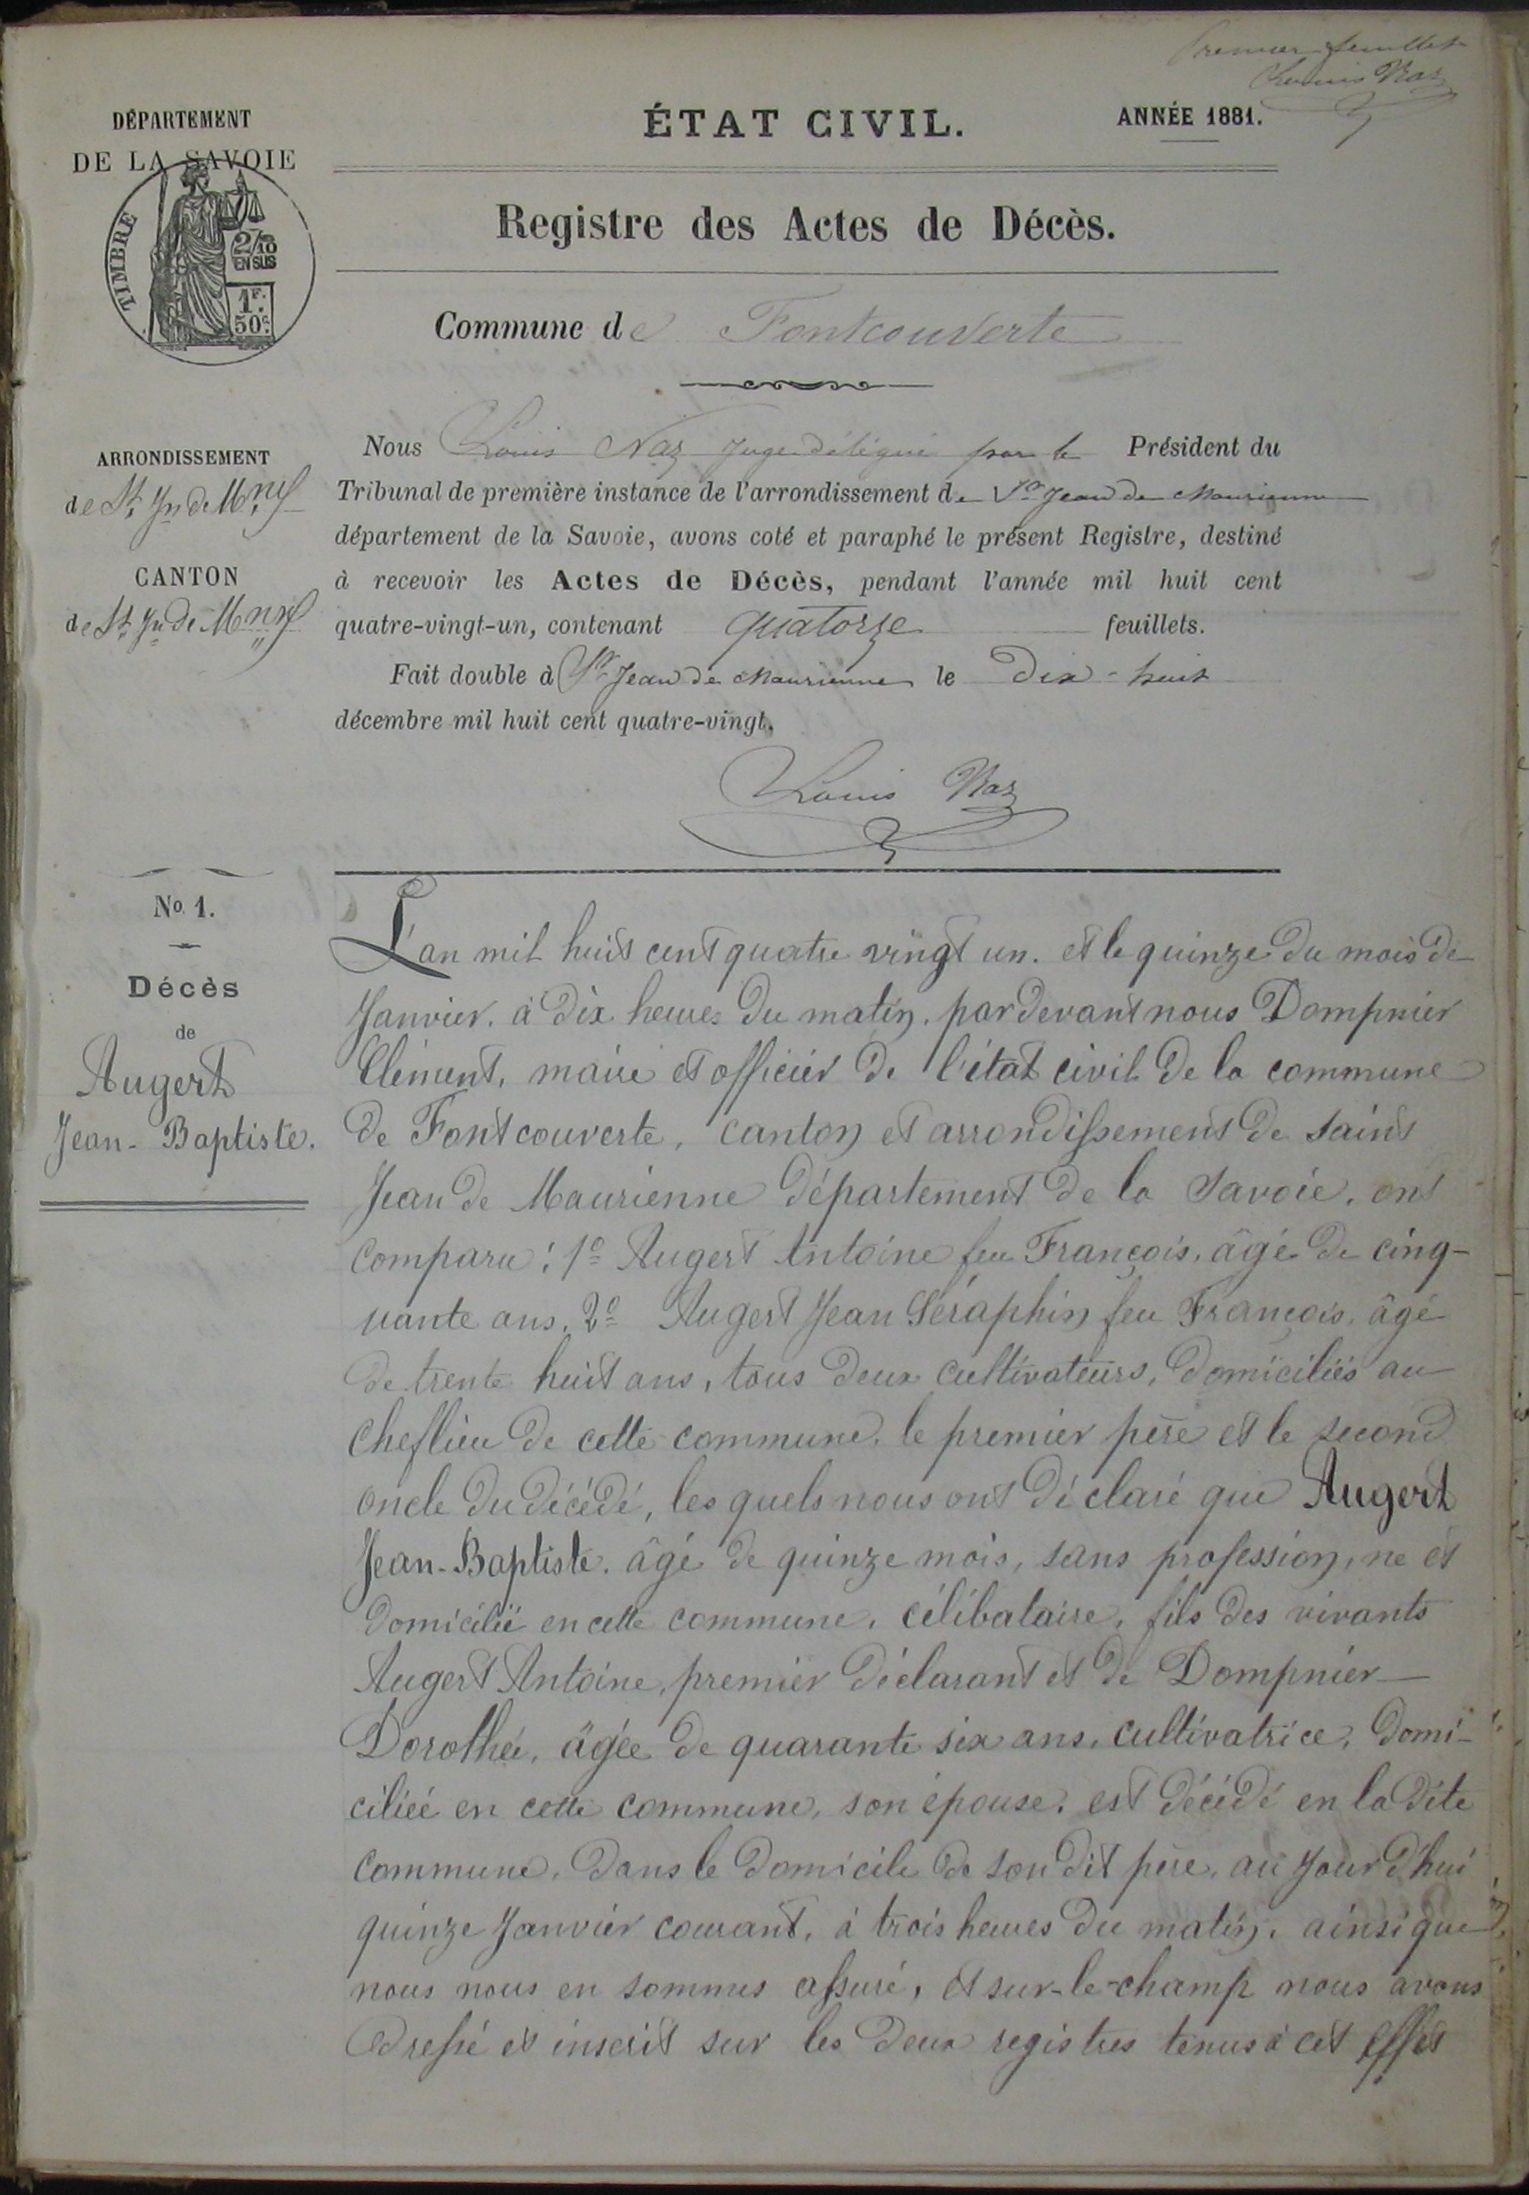 Premier feuillet
Louis Naz
DÉPARTEMENT
DE LA SAVOIE
TIMBRE
2/10
EN SUS
1F.
50c.
ÉTAT CIVIL.
ANNÉE 1881.
Registre des Actes de Décès.
Commune de Fontcouverte
ARRONDISSEMENT
de St. Jn de Mnne
CANTON
de St. Jn de Mnne
Nous Louis Naz Juge délégué par le Président du
Tribunal de première instance de l'arrondissement de St Jean de Maurienne
département de la Savoie, avons coté et paraphé le présent Registre, destiné
à recevoir les Actes de Décès, pendant l'année mil huit cent
quatre-vingt-un, contenant quatorze feuillets.
Fait double à St Jean de Maurienne le Dix-huit
décembre mil huit cent quatre-vingt.
Louis Naz
No. 1.
Décès
de
Augert
Jean-Baptiste.
L'an mil huit cent quatre vingt un. et le quinze du mois de
Janvier. à dix heures du matin. par devant nous Dompnier
Clément, maire et officier de l'état civil de la commune
de Fontcouverte, canton et arrondissement de saint
Jean de Maurienne département de la Savoie, ont
comparu: 1o Augert Antoine feu François, âgé de cinq-
uante ans, 2o Augert Jean Séraphin feu François, âgé
de trente huit ans, tous deux cultivateurs, domiciliés au
cheflieu de cette commune, le premier père et le second
oncle du décédé, les quels nous ont déclaré que Augert
Jean-Baptiste. âgé de quinze mois, sans profession, né et
domicilié en cette commune, célibataire, fils des vivants
Augert Antoine, premier déclarant et de Dompnier
Dorothée, âgée de quarante six ans, cultivatrice, domi-
ciliée en cette commune, son épouse, est décédé en la dite
commune, dans le domicile de son dit père, au jour d'hui
quinze Janvier courant, à trois heures du matin, ainsi que
nous nous en sommes assuré, et sur-le-champ nous avons
dressé et inscrit sur les deux registres tenus à cet effet